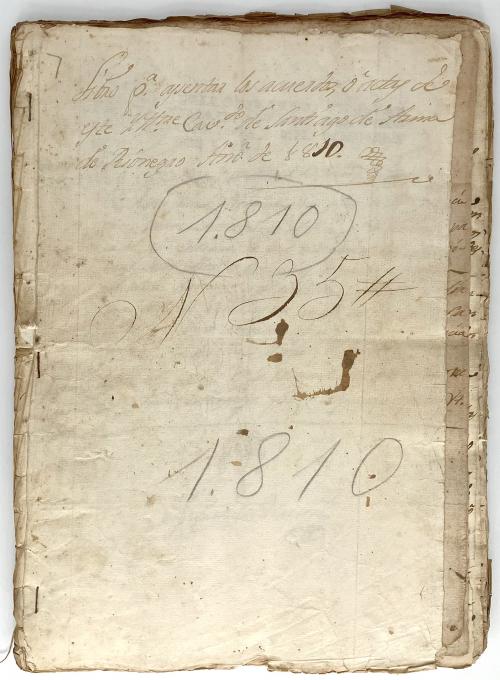 Libro pa. apentar los acuerdos, o actas de
este Ylltre Cavdo. de Santiago de Arma
de Rionegro Año de 1810.
1.810
N 35
1.810